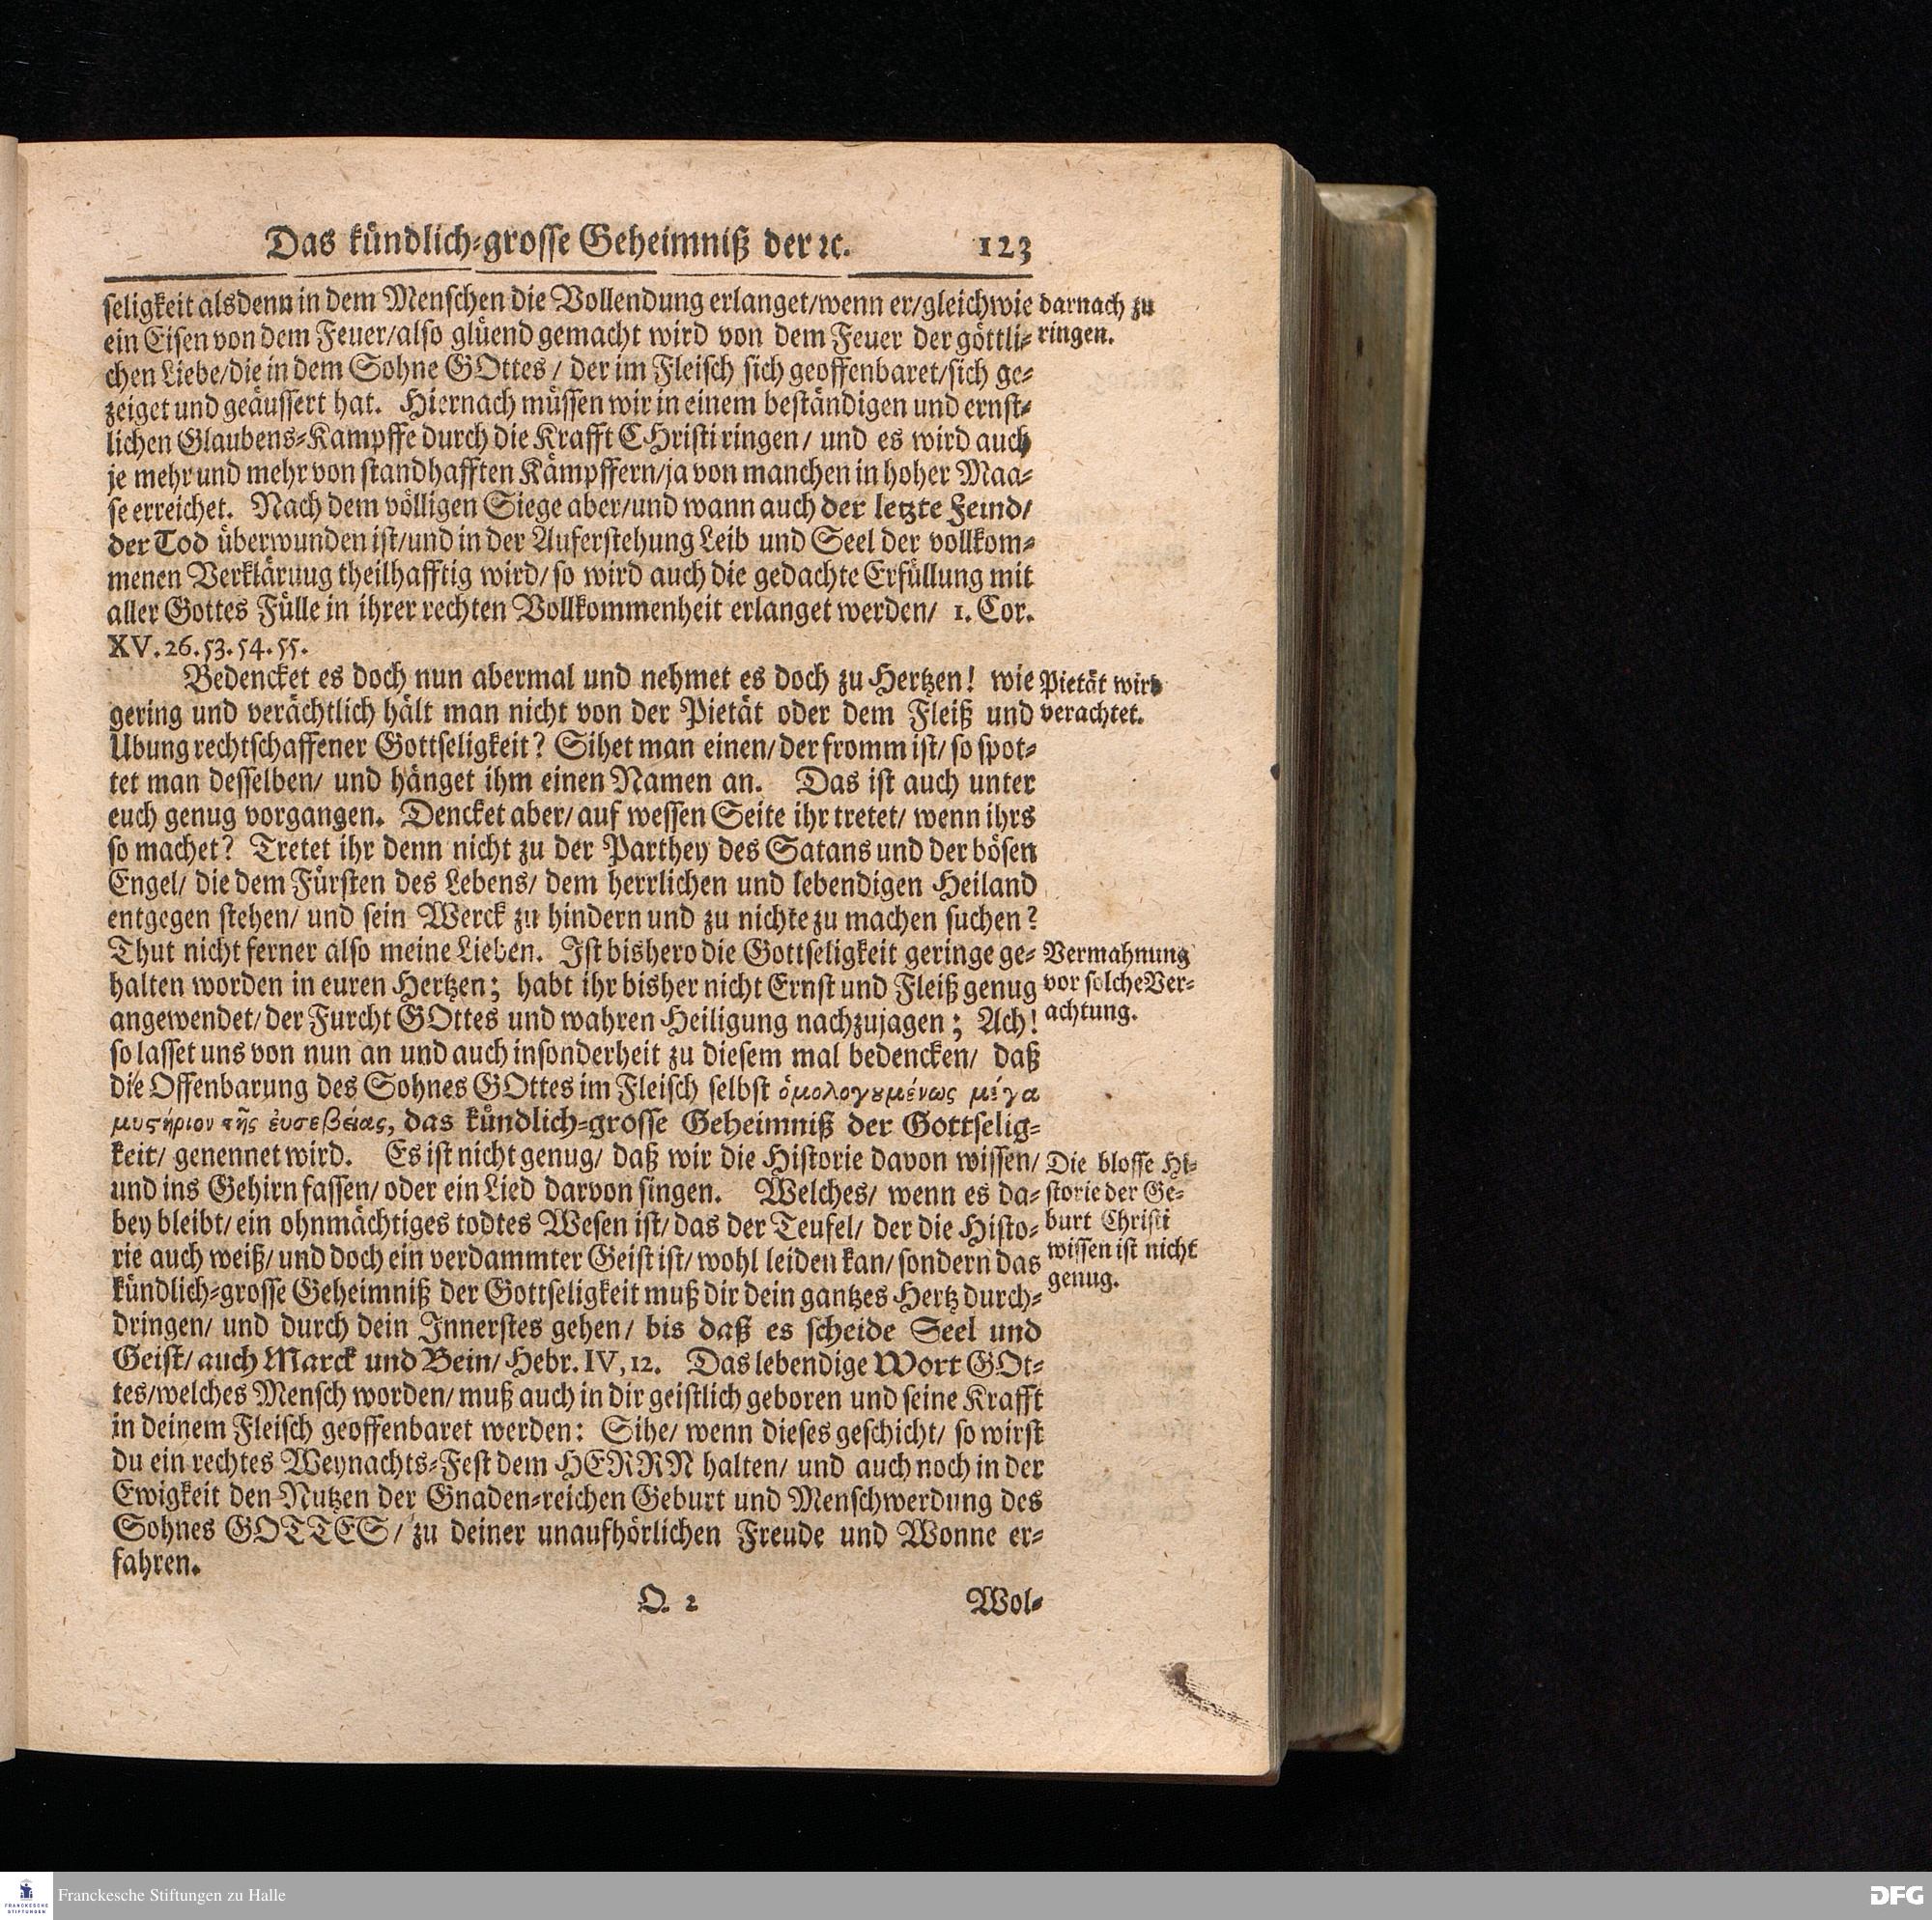 Das kündlich-grosse Geheimniß der ꝛc. 123
seligkeit alsdenn in dem Menschen die Vollendung erlanget/wenn er/gleichwie
ein Eisen von dem Feuer/also glüend gemacht wird von dem Feuer der göttli-
chen Liebe/die in dem Sohne GOttes / der im Fleisch sich geoffenbaret/sich ge-
zeiget und geäussert hat. Hiernach müssen wir in einem beständigen und ernst-
lichen Glaubens-Kampffe durch die Krafft CHristi ringen/ und es wird auch
je mehr und mehr von standhafften Kämpffern/ja von manchen in hoher Maa-
se erreichet. Nach dem völligen Siege aber/und wann auch der letzte Feind/
der Tod überwunden ist/und in der Auferstehung Leib und Seel der vollkom-
menen Verkläruug theilhafftig wird/ so wird auch die gedachte Erfüllung mit
aller Gottes Fülle in ihrer rechten Vollkommenheit erlanget werden/ 1. Cor.
XV. 26. 53. 54. 55.
darnach zu
ringen.
Bedencket es doch nun abermal und nehmet es doch zu Hertzen! wie
gering und verächtlich hält man nicht von der Pietät oder dem Fleiß und
Übung rechtschaffener Gottseligkeit? Sihet man einen/ der fromm ist/ so spot-
tet man desselben/ und hänget ihm einen Namen an. Das ist auch unter
euch genug vorgangen. Dencket aber/ auf wessen Seite ihr tretet/ wenn ihrs
so machet? Tretet ihr denn nicht zu der Parthey des Satans und der bösen
Engel/ die dem Fürsten des Lebens/ dem herrlichen und lebendigen Heiland
entgegen stehen/ und sein Werck zu hindern und zu nichte zu machen suchen?
Thut nicht ferner also meine Lieben. Ist bishero die Gottseligkeit geringe ge-
halten worden in euren Hertzen; habt ihr bisher nicht Ernst und Fleiß genug
angewendet/ der Furcht GOttes und wahren Heiligung nachzujagen; Ach!
so lasset uns von nun an und auch insonderheit zu diesem mal bedencken/ daß
die Offenbarung des Sohnes GOttes im Fleisch selbst ὁμολογȣμένως μέγα
μυϛήριον τῆς ἐυσεβείας, das kündlich-grosse Geheimniß der Gottselig-
keit/ genennet wird. Es ist nicht genug/ daß wir die Historie davon wissen/
und ins Gehirn fassen/ oder ein Lied darvon singen. Welches/ wenn es da-
bey bleibt/ ein ohnmächtiges todtes Wesen ist/ das der Teufel/ der die Histo-
rie auch weiß/ und doch ein verdammter Geist ist/ wohl leiden kan/ sondern das
kündlich-grosse Geheimniß der Gottseligkeit muß dir dein gantzes Hertz durch-
dringen/ und durch dein Innerstes gehen/ bis daß es scheide Seel und
Geist/ auch Marck und Bein/ Hebr. IV, 12. Das lebendige Wort GOt-
tes/welches Mensch worden/ muß auch in dir geistlich geboren und seine Krafft
in deinem Fleisch geoffenbaret werden: Sihe/ wenn dieses geschicht/ so wirst
du ein rechtes Weynachts-Fest dem HERRN halten/ und auch noch in der
Ewigkeit den Nutzen der Gnaden-reichen Geburt und Menschwerdung des
Sohnes GOTTES/ zu deiner unaufhörlichen Freude und Wonne er-
fahren.
Pietät wird
verachtet.
Vermahnung
vor solche Ver-
achtung.
Die blosse Hi-
storie der Ge-
burt Christi
wissen ist nicht
genug.
Q 2 Wol-
FRANCKESCHE
STIFTUNGEN
Franckesche Stiftungen zu Halle
DFG